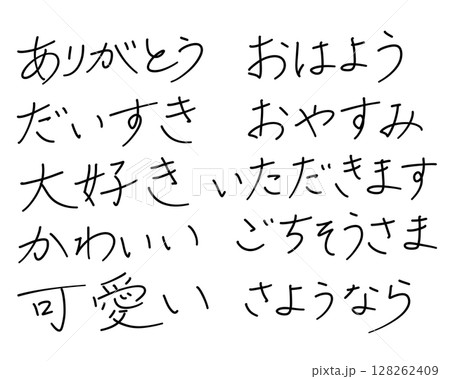 ありがとう
だいすき
大好き
かわいい
可愛い
おはよう
おやすみ
いただきます
ごちそうさま
さようなら
pixta.jp - 128262409